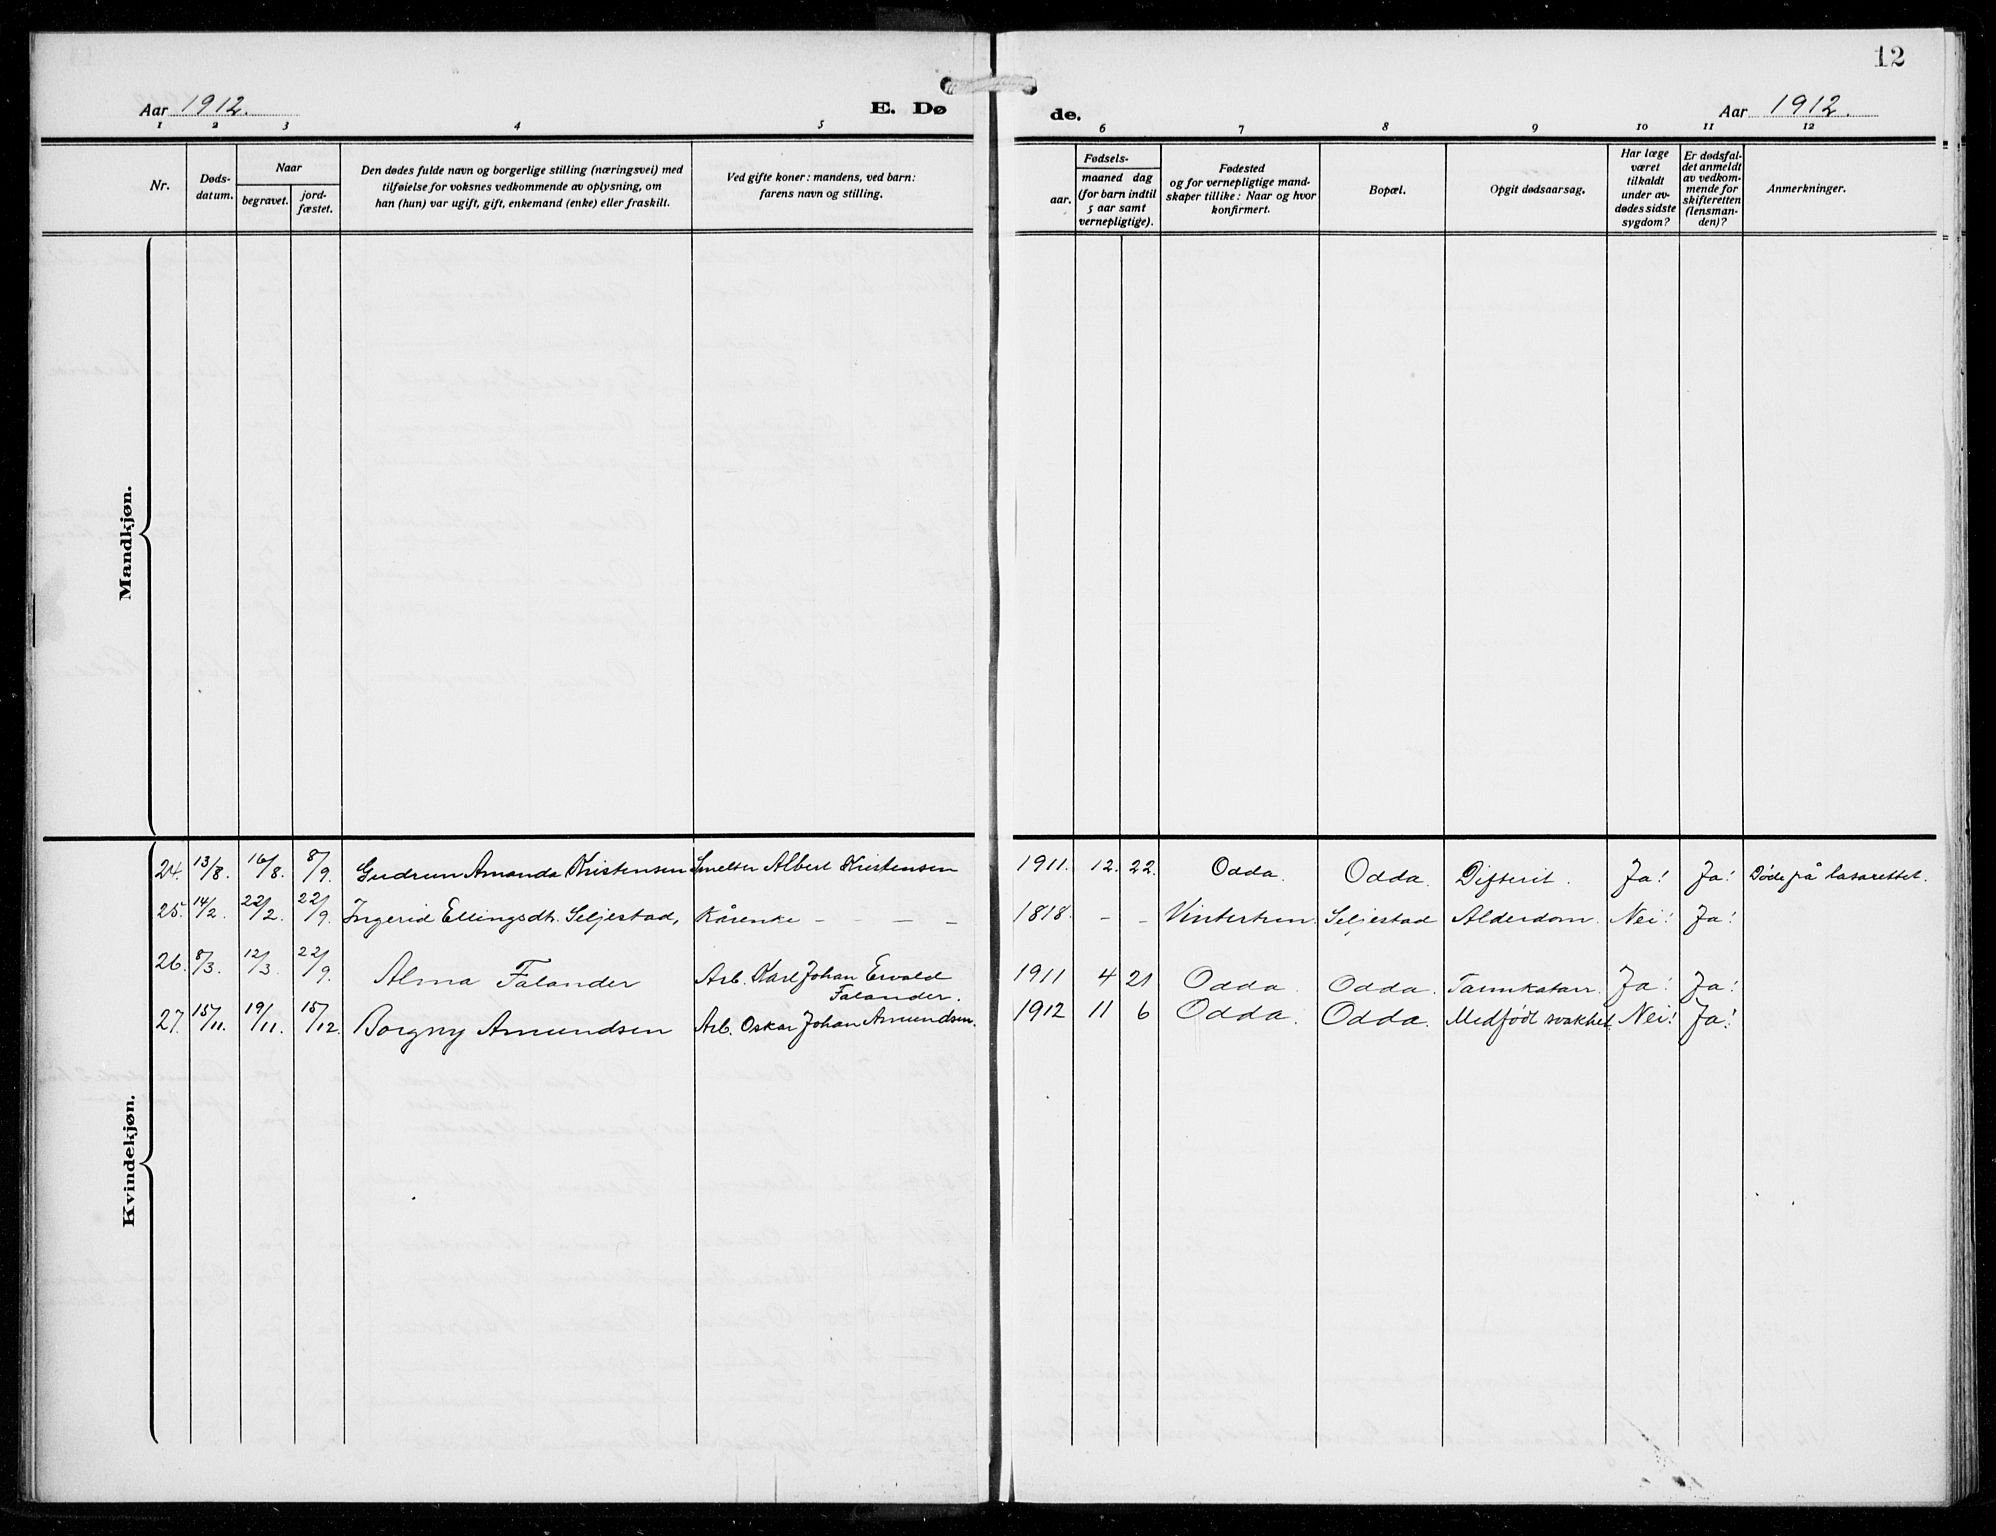 12
Aar 1912.
E. Dø
de.
Aar 1912.
1 2 3 4 5 6 7 8 9 10 11 12
Nr.
Døds-
datum.
Naar
begravet.
jord-
fæstet.
Den dødes fulde navn og borgerlige stilling (næringsvei) med
tilføielse for voksnes vedkommende av oplysning, om
han (hun) var ugift, gift, enkemand (enke) eller fraskilt.
Ved gifte koner: mandens, ved barn:
farens navn og stilling.
Fødsels-
aar.
maaned dag
(for barn indtil
5 aar samt
vernepligtige).
Fødested
og for vernepligtige mand-
skaper tillike: Naar og hvor
konfirmert.
Bopæl.
Opgit dødsaarsag.
Har læge
været
tilkaldt
under av-
dødes sidste
sygdom?
Er dødsfal-
det anmeldt
av vedkom-
mende for
skifteretten
(lensman-
den)?
Anmerkninger.
Mandkjøn.
Kvindekjøn.
24. 13/8. 16/8. 8/9. Gudrun Amanda Kristensen Smelter Albert Kristensen 1911. 12. 22. Odda. Odda. Difterit. Ja! Ja! Døde på lasarettet.
25. 14/2. 22/2. 22/9. Ingerid Ellingsdt. Seljestad, Kårenke - - - - 1818. - - Vintertun Seljestad Alderdom. Nei! Ja!
26. 8/3. 12/3. 22/9. Alma Falander Arb. Karl Johan Ervald
Falander. 1911 4 21 Odda. Odda. Tarmkatarr Ja! Ja!
27. 15/11. 19/11. 15/12. Borgny Amundsen Arb. Oskar Johan Amundsen. 1912 11 6 Odda. Odda. Medfødt svakhet. Nei! Ja!